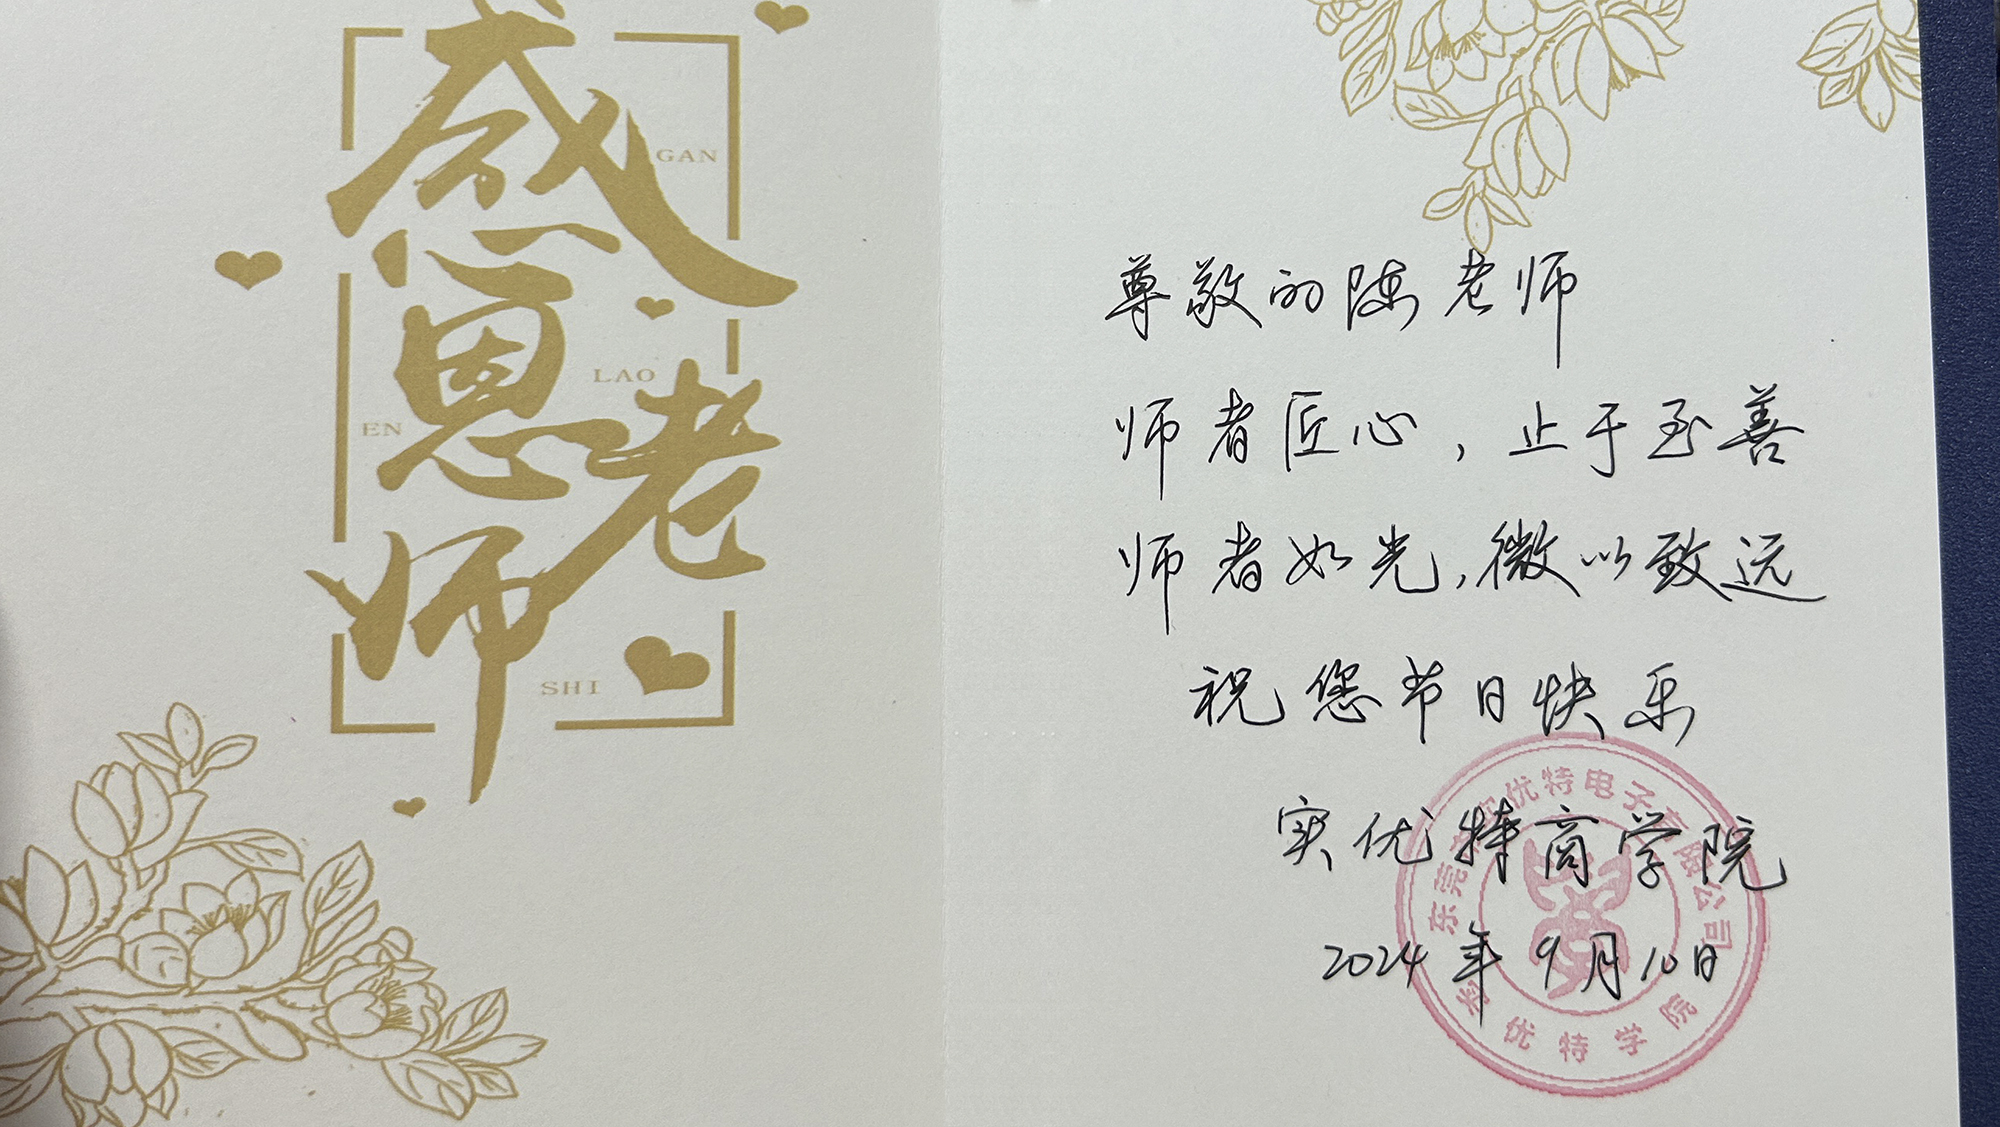 感恩老师
GAN
EN
LAO
SHI
尊敬的陈老师
师者匠心，止于至善
师者如光，微以致远
祝您节日快乐
实优特商学院
2024年9月10日
优特电子有限公司
优特学院